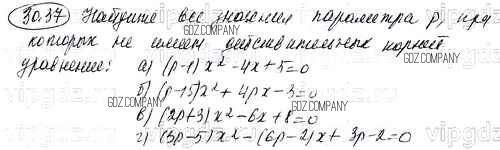 30.37 Найдите все значения параметра p, при
которых не имеет действительных корней
уравнение: а) (p-1)x²-4x+5=0
б) (p-15)x²+4px-3=0
в) (2p+3)x²-6x+8=0
г) (3p-5)x²-(6p-2)x+3p-2=0
GDZ.COMPANY
GDZ.COMPANY
GDZ.COMPANY
GDZ.COMPANY
GDZ.COMPANY